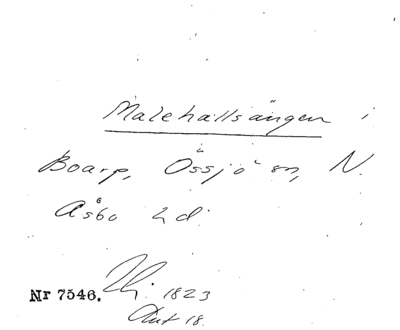 Malehallsängen i
Boarp, Össjö sn, N.
Åsbo hd.
Nr 7546. 1823
Akt 18.